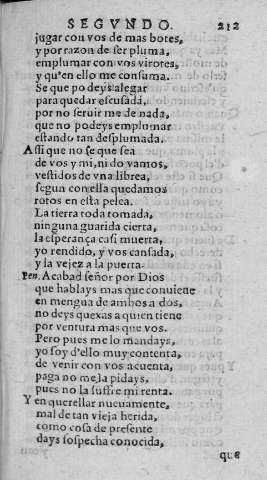 SEGVNDO. 212
jugar con vos de mas botes,
y por razon de ser pluma,
emplumar con vos virotes,
y qu'en ello me consuma.
Se que podeys alegar
para quedar escusada,
por no seruir me de nada,
que no podeys emplumar
estando tan desplumada.
Assi que no se que sea
de vos y mi, ni do vamos,
vestidos de vna librea,
segun con ella quedamos
rotos en esta pelea.
La tierra toda tomada,
ninguna guarida cierta,
la esperança casi muerta,
yo rendido, y vos cansada,
y la vejez a la puerta.
Pen. Acabad señor por Dios
que hablays mas que conuiene
en mengua de ambos a dos,
no deys quexas a quien tiene
por ventura mas que vos.
Pero pues me lo mandays,
yo soy d'ello muy contenta,
de venir con vos a cuenta,
paga no me la pidays,
pues no la suffre mi renta.
Y en querellar nueuamente,
mal de tan vieja herida,
como cosa de presente
days sospecha conocida,
que